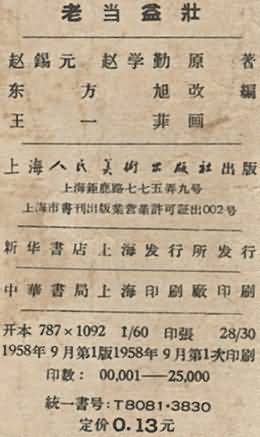 老当益壮
赵錫元 赵学勤原著
东方旭改編
王一菲画
上海人民美術出版社出版
上海鉅鹿路七七五弄九号
上海市書刊出版業营業許可証出002号
新华書店上海发行所发行
中華書局上海印刷廠印刷
开本 787×1092 1/60 印張 28/30
1958年9月第1版1958年9月第1次印刷
印数：00,001——25,000
統一書号：T8081·3830
定价0.13元